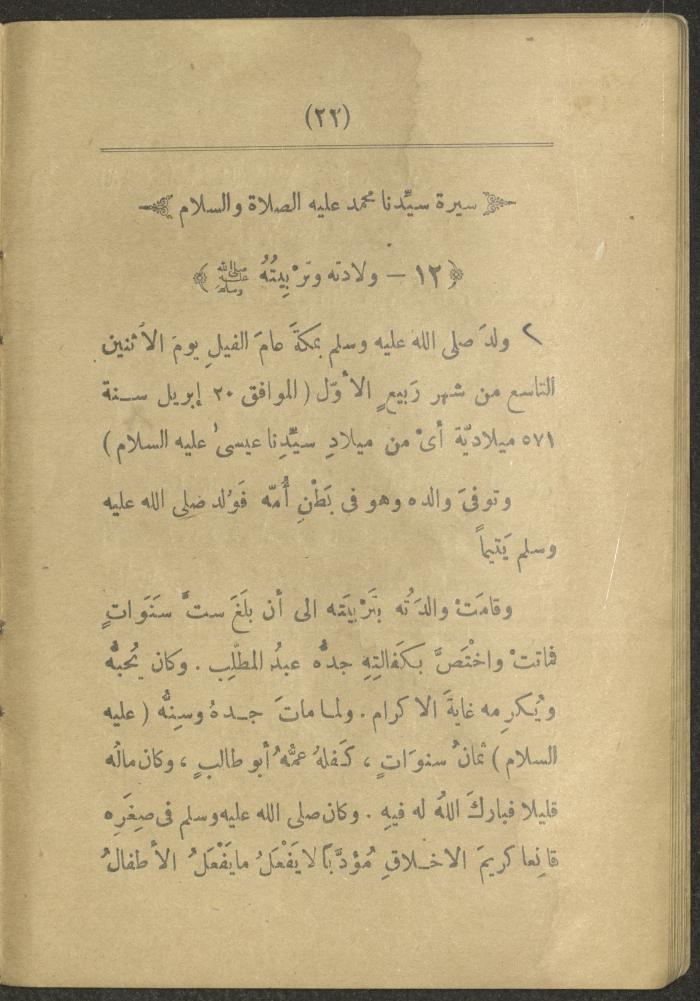 (٢٢)
سيرة سيِّدنا محمد عليه الصلاة والسلام
﴿١٢ – ولادته وتَرْبِيتُهُ ﷺ﴾
٢ ولدَ صلى الله عليه وسلم بمكةَ عامَ الفيلِ يومَ الأثنين
التاسع من شهر رَبيعٍ الأوّل (الموافق ٢٠ إبريل سنة
٥٧١ ميلاديّة أىْ من ميلادِ سيِّدِنا عيسىُ عليه السلام)
وتوفىَ والده وهو فى بَطْنِ أُمّه فَوُلد صلى الله عليه
وسلم يَتيماً
وقامَتْ والدَتُه بتَرْبيَته الى أن بلَغَ ستَّ سَنَوَاتٍ
فماتتْ واخْتَصَّ بكَفالتِهِ جدُّه عبدُ المطَّلِب . وكان يُحبهُّ
ويُكرِمه غايةَ الاكرام . ولما ماتَ جدهُ وسِنهُّ (عليه
السلام) ثمانُ سنوَاتٍ ، كَفلهُ عمُّهُ أبو طالبٍ ، وكان مالُه
قليلا فباركَ اللهُ له فيهِ . وكان صلى الله عليه وسلم فى صِغَرِه
قانِعا كريمَ الاخلاقِ مُؤدَّباً لايَفْعَلُ مايَفْعَلُ الأطفالُ